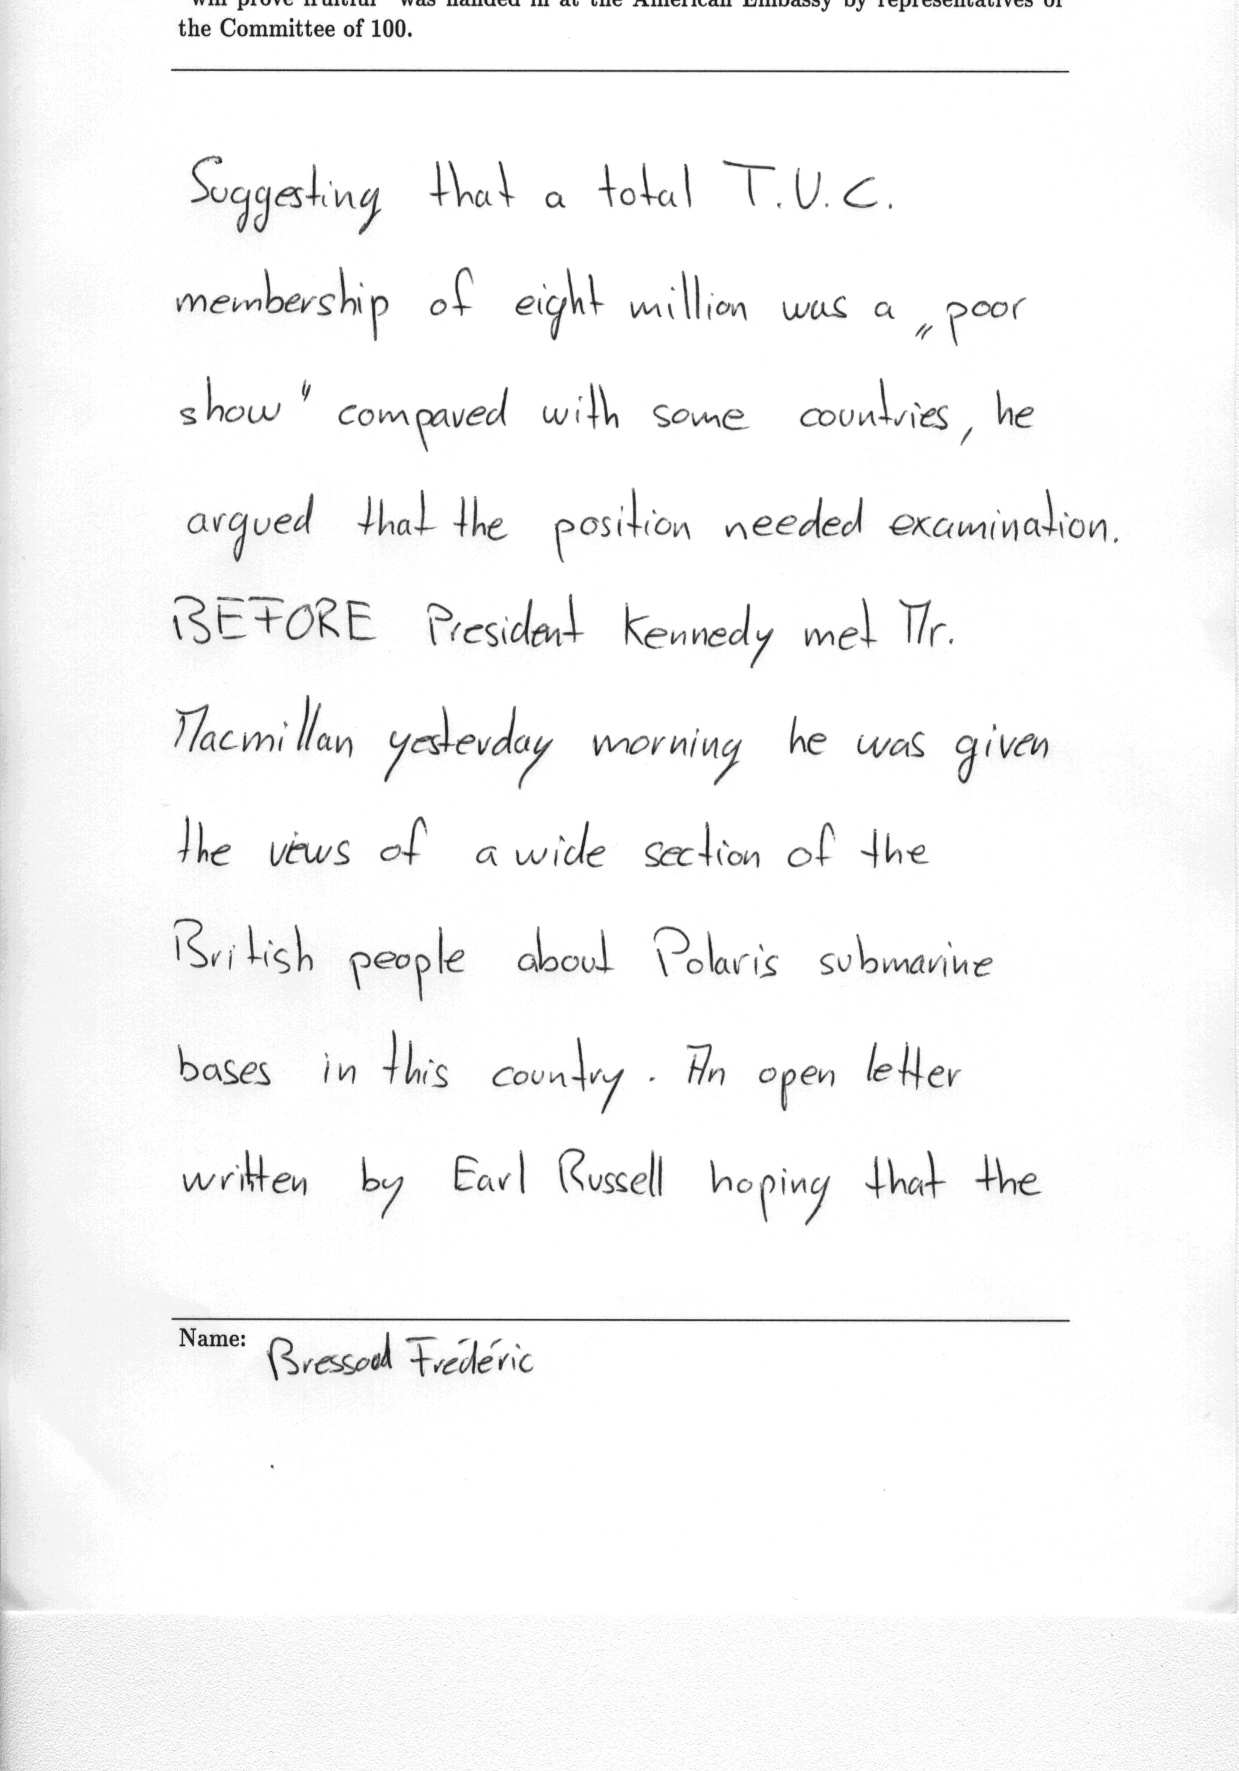 "will prove fruitful" was handed in at the American Embassy by representatives of
the Committee of 100.
Suggesting that a total T.U.C.
membership of eight million was a „poor
show" compared with some countries, he
argued that the position needed examination.
BEFORE President Kennedy met Mr.
Macmillan yesterday morning he was given
the views of a wide section of the
British people about Polaris submarine
bases in this country. An open letter
written by Earl Russell hoping that the
Name: Bressoud Frédéric